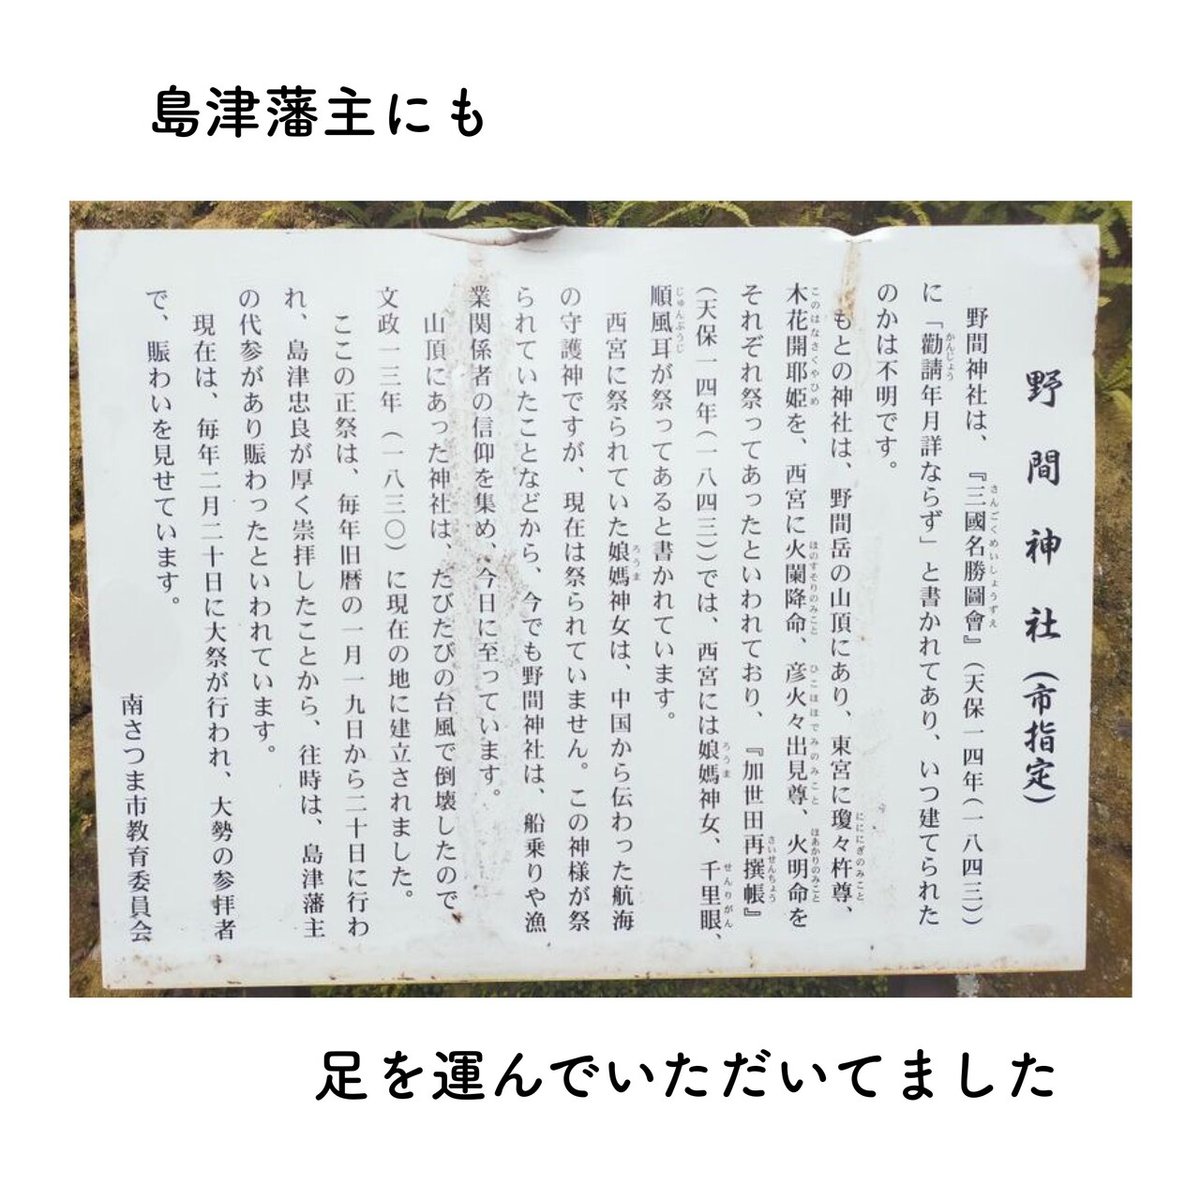 島津藩主にも
野間神社(市指定)
野間神社は、『三國名勝圖會』(天保一四年(一八四三))
さんごくめいしょうずえ
に「勸請年月詳ならず」と書かれてあり、いつ建てられた
かんじょう
のかは不明です。
もとの神社は、野間岳の山頂にあり、東宮に瓊々杵尊、
ににぎのみこと
木花開耶姫を、西宮に火闌降命、彦火々出見尊、火明命を
このはなさくやひめ ほのすそりのみこと ひこほほでみのみこと ほあかりのみこと
それぞれ祭ってあったといわれており、『加世田再撰帳』
さいせんちょう
(天保一四年(一八四三))では、西宮には娘媽神女、千里眼、
ろうま せんりがん
順風耳が祭ってあると書かれています。
じゅんぷうじ
西宮に祭られていた娘媽神女は、中国から伝わった航海
ろうま
の守護神ですが、現在は祭られていません。この神様が祭
られていたことなどから、今でも野間神社は、船乗りや漁
業関係者の信仰を集め、今日に至っています。
山頂にあった神社は、たびたびの台風で倒壊したので、
文政一三年(一八三〇)に現在の地に建立されました。
ここの正祭は、毎年旧暦の一月一九日から二十日に行わ
れ、島津忠良が厚く崇拝したことから、往時は、島津藩主
の代参があり賑わったといわれています。
現在は、毎年二月二十日に大祭が行われ、大勢の参拝者
で、賑わいを見せています。
南さつま市教育委員会
足を運んでいただいてました